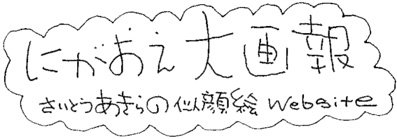 にがおえ大画報
さいとうあきらの似顔絵 Website